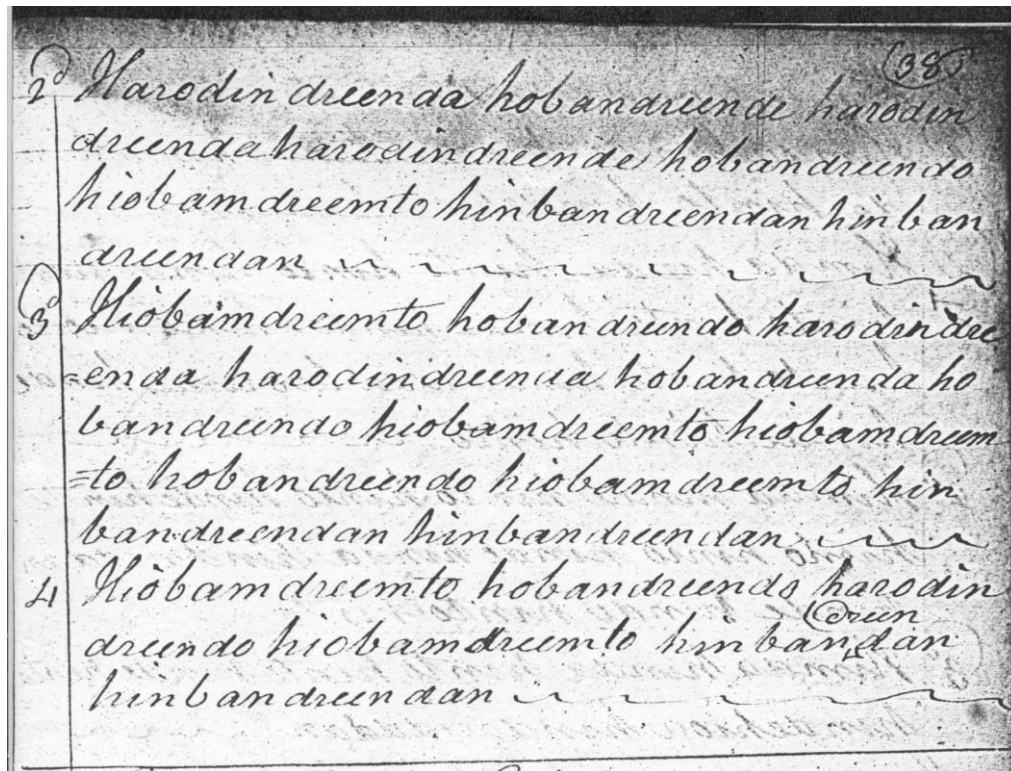 38
2d Harodin dreenda hobandreende harodin
dreenda harodindreende hobandreendo
hiobamdreemto hinbandreendan hinban
dreendan
3d Hiobamdreemto hobandreendo harodindre
=enda harodindreenda hobandreenda ho
bandreendo hiobamdreemto hiobamdreem
=to hobandreendo hiobamdreemto hin
bandreendan hinbandreendan
4 Hiobamdreemto hobandreendo harodin
dreen
dreendo hiobamdreemto hinbandan
hinbandreendan